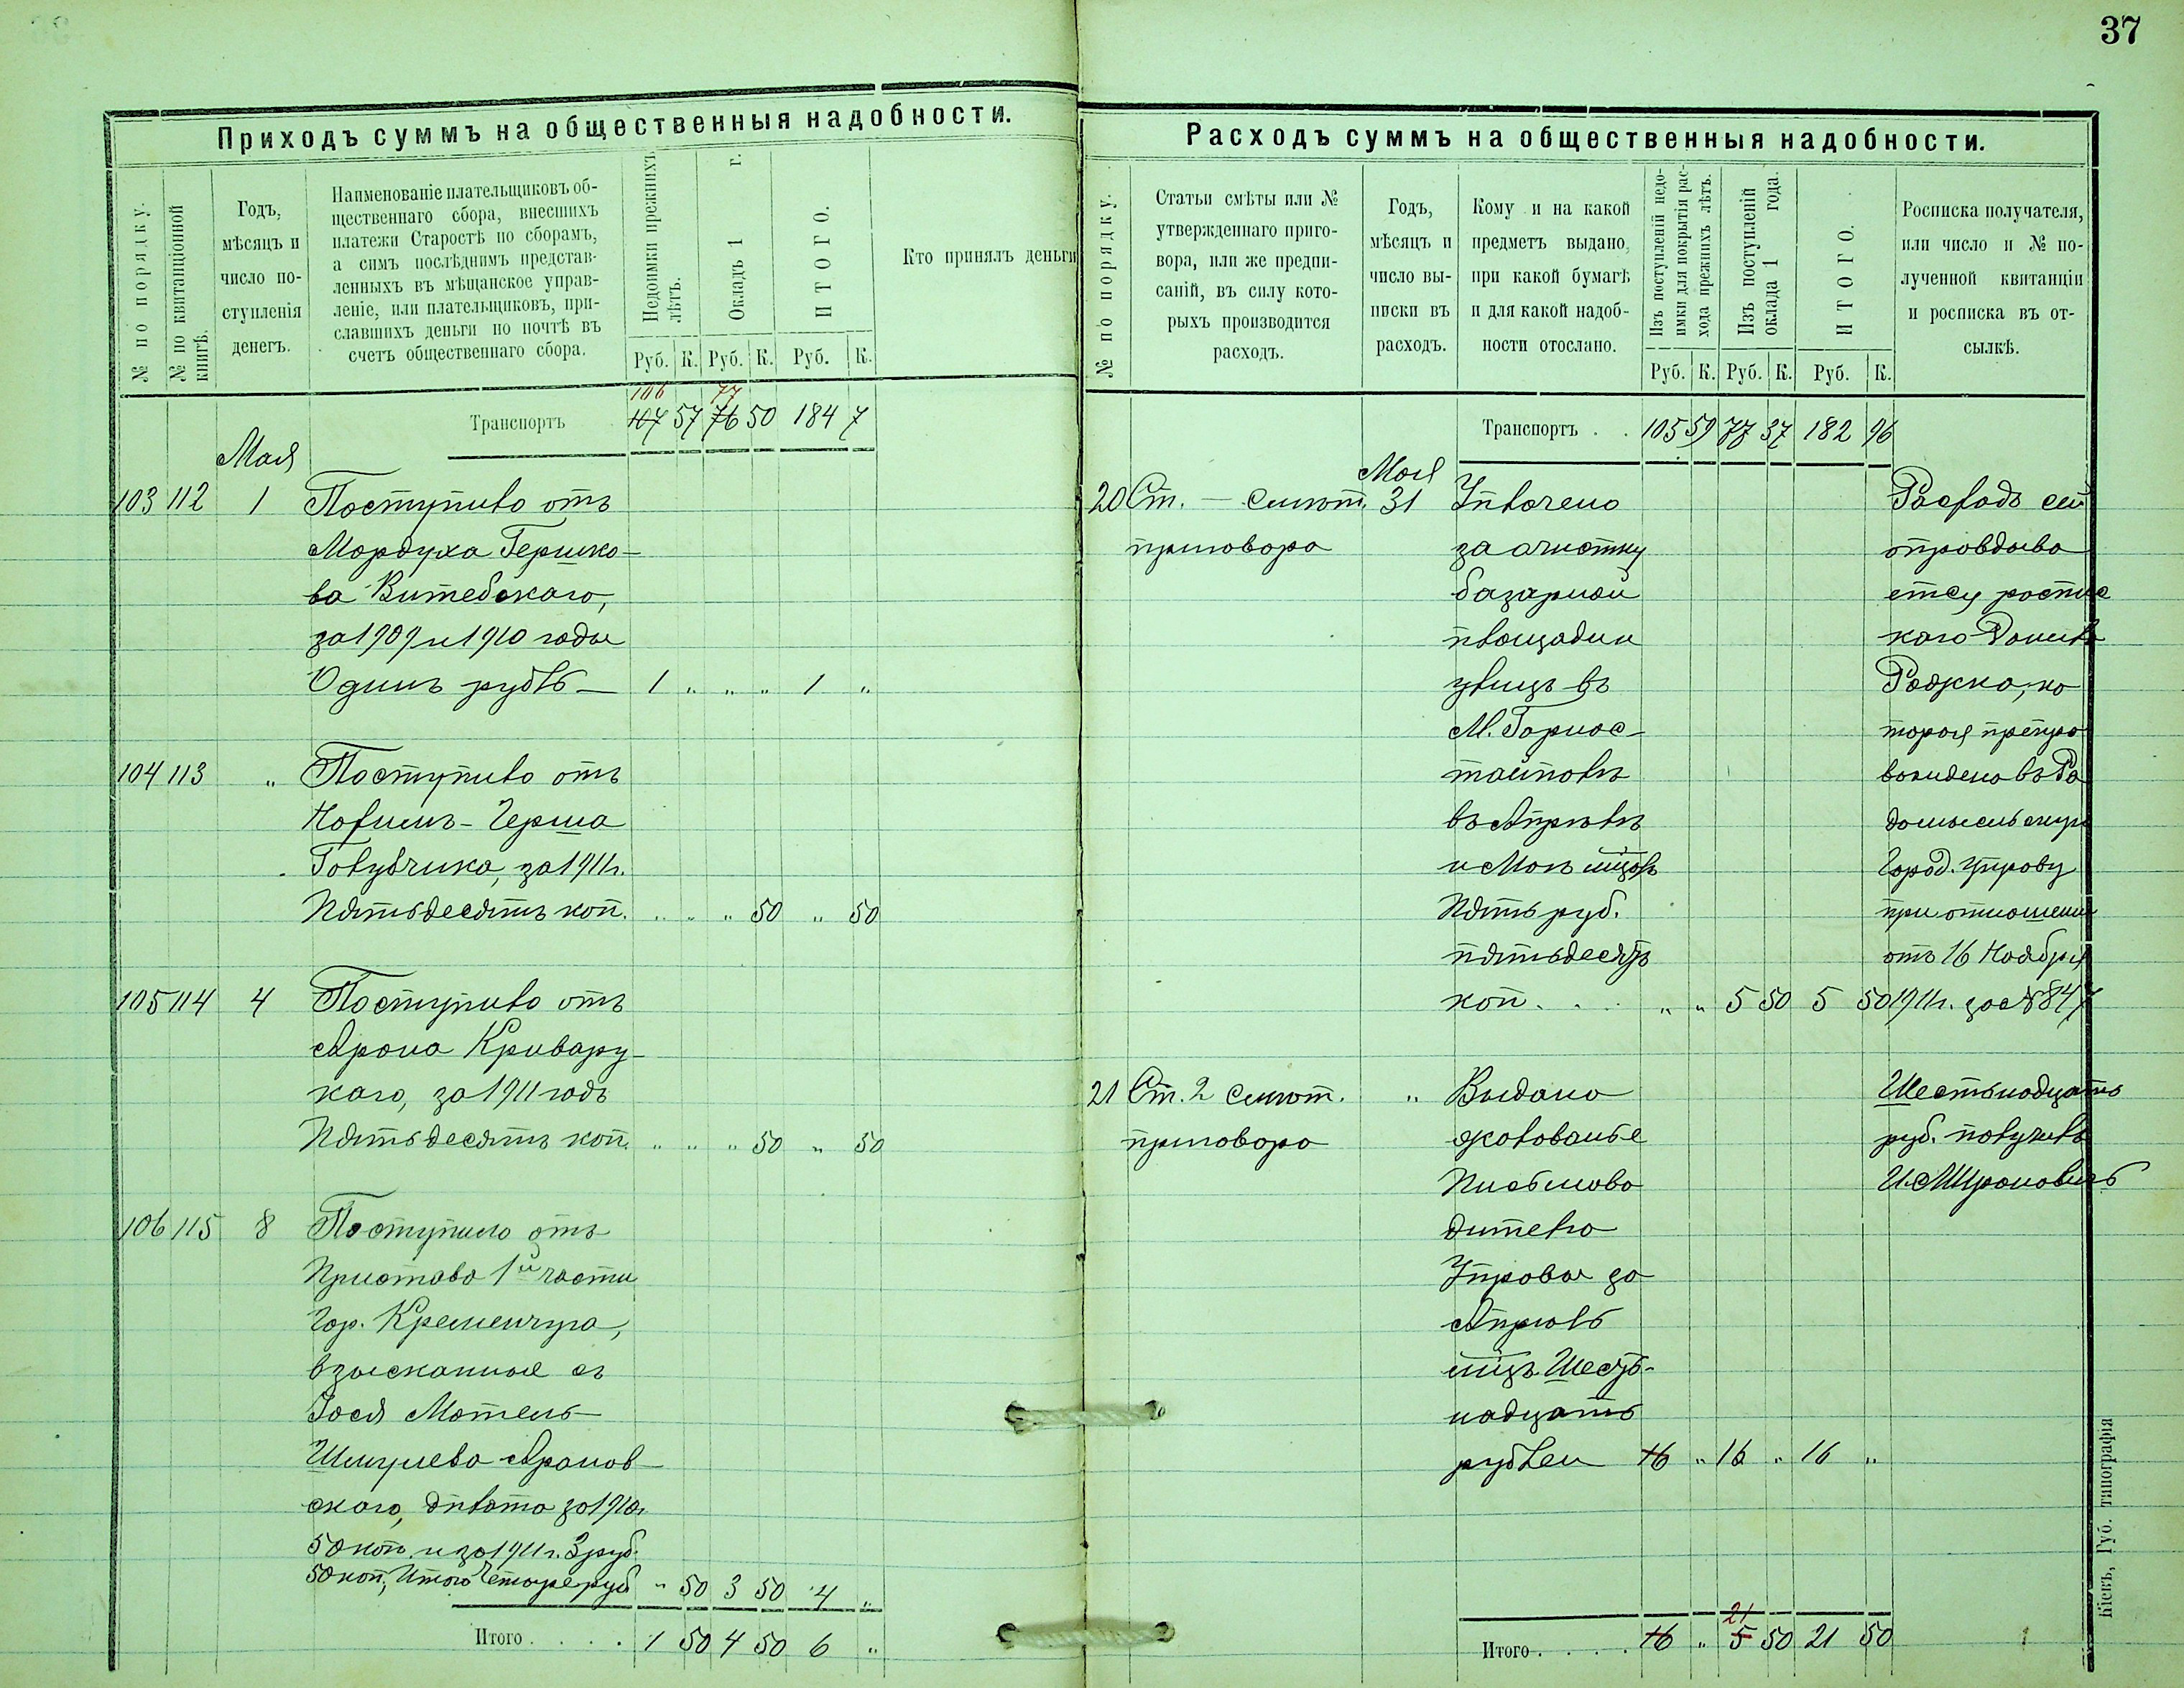 37
Приходъ суммъ на общественныя надобности.
№ по порядку.
№ по квитанціонной книгѣ.
Годъ,
мѣсяцъ и
число по-
ступленія
денегъ.
Наименованіе плательщиковъ об-
щественнаго сбора, внесшихъ
платежи Старостѣ по сборамъ,
а симъ послѣднимъ представ-
ленныхъ въ мѣщанское управ-
леніе, или плательщиковъ, при-
славшихъ деньги по почтѣ въ
счетъ общественнаго сбора.
Недоимки прежнихъ
лѣтъ.
Окладъ 1 г.
ИТОГО.
Руб. К. Руб. К. Руб. К.
Кто принялъ деньги
106 77
Транспортъ 107 57 76 50 184 7
Мая
103 112 1 Поступило отъ
Мордуха Гершко-
ва Витебскаго,
за 1909 и 1910 годы
Одинъ рубль — 1 „ „ „ 1 „
104 113 „ Поступило отъ
Нохимъ-Герша
Голубчика, за 1911 г.
Пятьдесятъ коп. „ „ „ 50 „ 50
105 114 4 Поступило отъ
Арона Кривару-
каго, за 1911 годъ
Пятьдесятъ коп. „ „ „ 50 „ 50
106 115 8 Поступило отъ
Пристава 1й части
Гор. Кременчуга,
взысканные съ
Іося Мотель-
Шмулева Аронов-
скаго, оклата за 1910 г.
50 коп. и за 1911 г. 3 руб.
50 коп., Итого Четыре руб. „ 50 3 50 4 „
Итого . . . . 1 50 4 50 6 „
Расходъ суммъ на общественныя надобности.
№ по порядку.
Статьи смѣты или №
утвержденнаго приго-
вора, или же предпи-
саній, въ силу кото-
рыхъ производится
расходъ.
Годъ,
мѣсяцъ и
число вы-
писки въ
расходъ.
Кому и на какой
предметъ выдано,
при какой бумагѣ
и для какой надоб-
ности отослано.
Изъ поступленій недо-
имки для покрытія рас-
хода прежнихъ лѣтъ.
Изъ поступленій
оклада 1 года.
ИТОГО.
Руб. К. Руб. К. Руб. К.
Росписка получателя,
или число и № по-
лученной квитанціи
и росписка въ от-
сылкѣ.
Транспортъ . . 105 59 77 37 182 96
Мая
20 Ст. — смѣт. 31 Уплочено Расходъ сей
приговора за очистку оправдыва
базарной ется роспис
площади и кою Данила
улицъ въ Рожко, ко
М. Горнос- торая препро
тайполѣ вождена въ Ра
въ Апрѣлѣ домысльскую
и Маѣ мцахъ Город. Управу
Пять руб. при отношеніи
пятьдесятъ отъ 16 Ноября
коп. . . . „ „ 5 50 5 50 1911 г. за № 847
21 Ст. 2 смѣт. „ Выдано Шестьнадцать
приговора жалованье руб. получилъ
Письмово
дителю
Управы за
Апрѣль
мцъ Шесть-
надцать
рублей 16 „ 16 „ 16 „
21
Итого . . . . 16 „ 5 50 21 50
Кіевъ, Губ. типографія